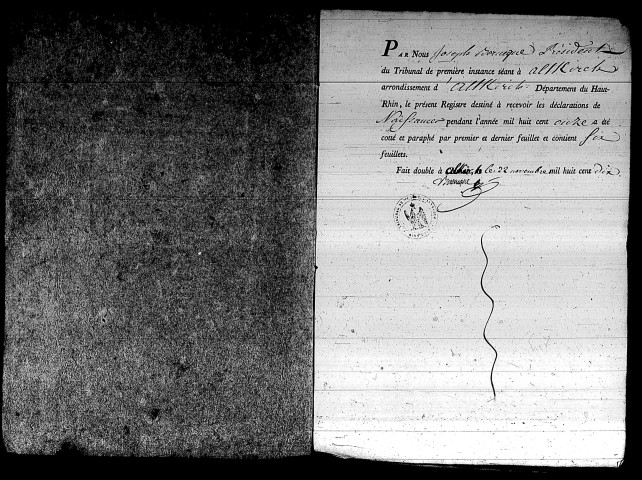 PAR Nous Joseph Président
du Tribunal de première instance séant à altkirch
arrondissement d'altkirch Département du Haut-
Rhin, le présent Registre destiné à recevoir les déclarations de
Naissances pendant l'année mil huit cent onze a été
cotté et paraphé par premier et dernier feuillet et contient Six
feuillets.
Fait double à altkirch le 22 novembre mil huit cent dix